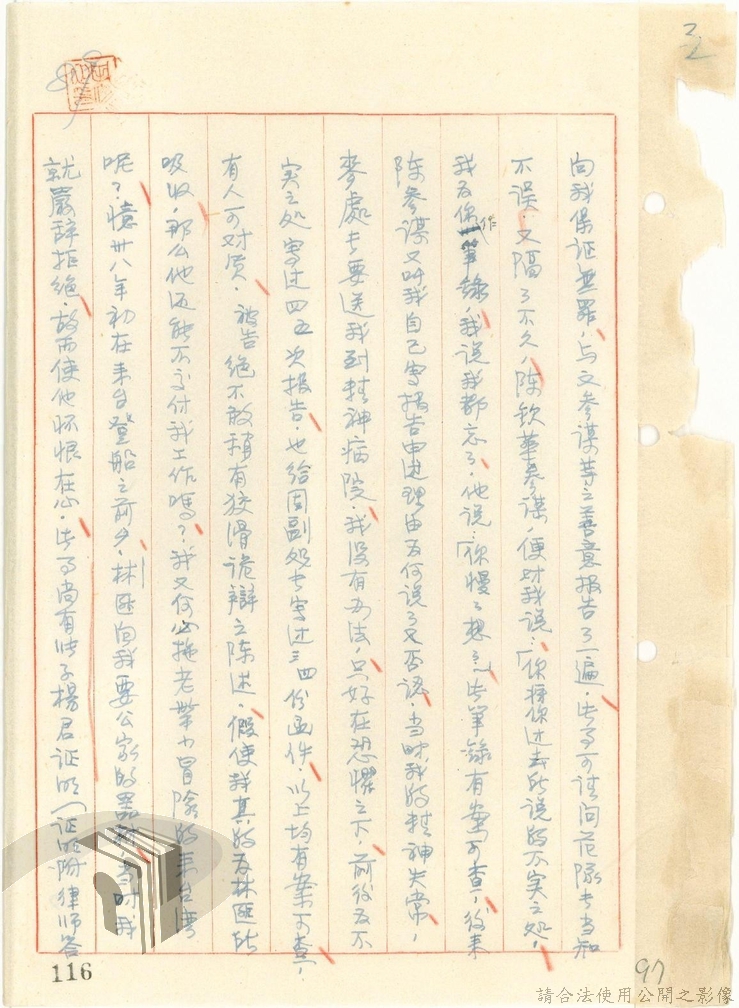 向我保证無罪，与文参谋等之善意报告了一遍，此可可请问范隊长当知
不误，又隔了不久，陈钦華参谋，便对我说：「你将你过去所说的不实之处，
我为你作筆錄，我说我都忘了，他说：「你慢了想え，此筆錄有案可查，後来
陈参谋又叫我自己寫报告申述理由为何说了又否认，当时我的精神失常，
麥處长要送我到精神病院，我没有办法，只好在恐懼之下，前後为不
实之处寫过四五次报告，也给周副处长寫过三四份函件，以上均有案可查，
有人可对质，被告绝不敢稍有狡滑诡辯之陈述，假使我真的为林匪所
吸收，那么他还能不交付我工作嗎？我又何必拖老帶小冒險的来台灣
呢？憶卅八年初在来台登船之前夕，林匪向我要公家的器材，当时我
就嚴辞拒绝，故而使他怀恨在心，此事尚有妻子楊君证明（证明附律师答
116
97
請合法使用公開之影像